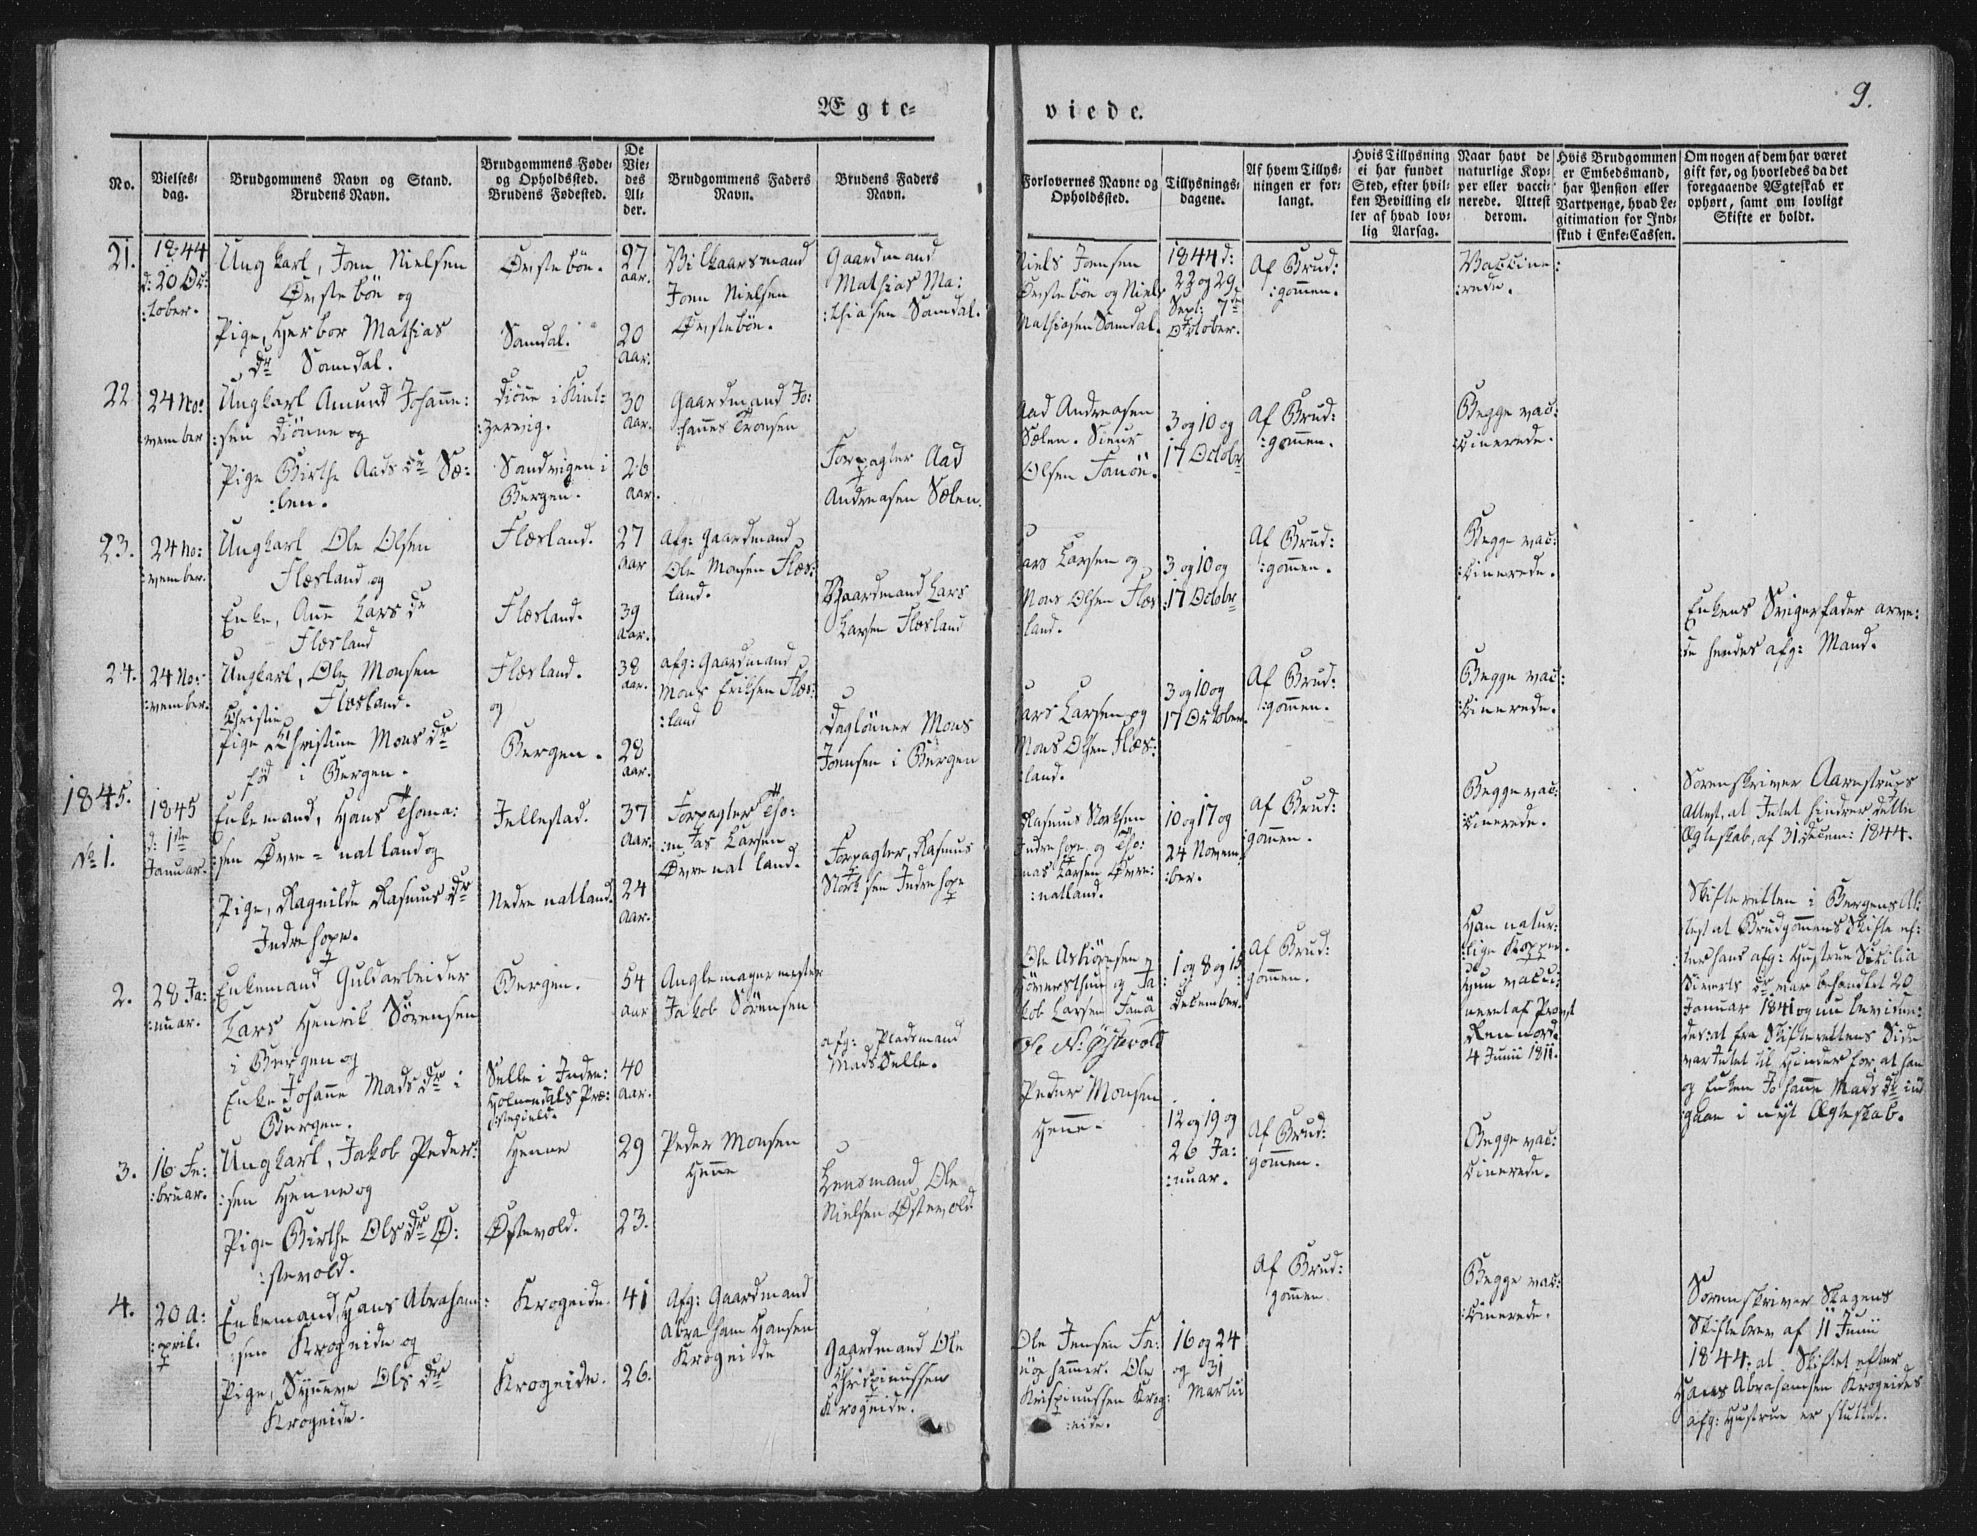 Ægte-
viede.
9.
No.
Vielses-
dag.
Brudgommens Navn og Stand.
Brudens Navn.
Brudgommens Føde-
og Opholdssted.
Brudens Fødested.
De
Vie-
des
Al-
der.
Brudgommens Faders
Navn.
Brudens Faders
Navn.
Forlovernes Navne og
Opholdssted.
Tillysnings-
dagene.
Af hvem Tillys-
ningen er for-
langt.
Hvis Tillysning
ei har fundet
Sted, efter hvil-
ken Bevilling el-
ler af hvad lov-
lig Aarsag.
Naar havt de
naturlige Kop-
per eller vacci-
nerede. Attest
derom.
Hvis Brudgommen
er Embedsmand,
har Pension eller
Vartpenge, hvad Le-
gitimation for Ind-
skud i Enke-Cassen.
Om nogen af dem har været
gift før, og hvorledes da det
foregaaende Ægteskab er
ophørt, samt om lovligt
Skifte er holdt.
21.
1844
d: 20 Oc:
:tober.
Ungkarl, Jonn Nielsen
Øvstebön og
Pige, Herbor Mathias
dr Samdal.
Øvstebön.
Samdal.
27
aar.
20
aar.
Vilkaarsmand
Jonn Nielsen
Øvstebön.
Gaardmand
Mathias Ma:
:thiasen Samdal.
Niels Jonsen
Øvstebön og Niels
Mathiasen Samdal.
1844 d:
22 og 29
Sept: 7de
October.
Af Brud:
:gommen.
Vaccine:
:rede.
22
24 No:
:vember
Ungkarl Amund Johanne:
:sen Diönne og
Pige Birthe Aads dr Sæ:
:len.
Diönne i Kint:
:zervig.
Sandvigen i
Bergen.
30
aar.
26
aar.
Gaardmand Jo:
:hannes Tronsen
Forpagter Aad
Andreasen Sælen.
Aad Andreasen
Sælen. Siur
Olsen Fanön.
3 og 10 og
17 Octobr
Af Brud:
:gommen.
Begge vac:
:cinerede.
23.
24 No:
:vember.
Ungkarl Ole Olsen
Flæsland og
Enke, Anne Lars dr
Flæsland
Flæsland.
Flæsland.
27
aar
39
aar.
afg: Gaardmand
Ole Monsen Flæs:
land.
Gaardmand Lars
Larsen Flæsland
Lars Larsen og
Mons Olsen Flæs
:land.
3 og 10 og
17 Octobr
Af Brud:
:gommen.
Begge vac:
:cinerede.
Enkens Svigerfader arve:
:de hendes afg: Mand.
24.
24 No:
:vember.
Ungkarl, Ole Monsen
Flæsland.
Pige Christine Mons dr
fød i Bergen.
Flæsland.
og
Bergen.
38
aar.
28
aar.
afg: Gaardmand
Mons Eriksen Flæs:
:land
Daglönner Mons
Jonnsen i Bergen
Lars Larsen og
Mons Olsen Flæs:
:land.
3 og 10 og
17 October.
Af Brud:
:gommen.
Begge vac:
:cinerede.
1845.
No 1.
1845
d: 1ste
Januar.
Enkemand, Hans Thoma:
:sen Øvre-natland og
Pige, Ragnilde Rasmus dr
Indrehope.
Jellestad.
Nedre natland.
37
aar.
24
aar.
Forpagter Tho:
:mas Larsen
Øvre natland.
Forpagter, Rasmus
Nortsen Indrehope
Rasmus Nortsen
Indrehope og Tho:
mas Larsen Øvre:
:natland.
10 og 17 og
24 Novem
:ber.
Af Brud:
gommen.
Begge vac:
:cinerede.
Sorenskriver Aarestrups
Attest, at Intet hindrer dette
Ægteskab, af 31 Decem: 1844.
2.
28 Ja:
:nuar.
Enkemand Guldarbeider
Lars Henrik Sörensen
i Bergen og
Enke Johanne Mads dr i
Bergen.
Bergen.
Selle i Indre:
Holmedals Præ:
:stegield.
54
aar
40
aar.
Jakob Sörensen
afg: Pladsmand
Mads Selle.
Ole Asbiörnsen
kob Larsen Fanö
Ole N: Østevold
1 og 8 og 15
December.
Af Brud:
gommen.
Han natur:
:lige Kopper.
Hun vacci:
neret af Provst
Rennord
4 Junii 1811.
Skifteretten i Bergens At:
test at Brudgommens Skifte ef:
:ter hans afg: Hustrue Sicilia
Siverts dr var behandlet 20
Januar 1841 og nu bevidne:
des: at fra Skifterettens Side
var Intet til Hinder for, at han
og Enken Johanne Mads dr ind
gaar i nyt Ægteskab.
3.
16 Fe:
:bruar.
Ungkarl, Jakob Peder:
:sen Henne og
Pige Birthe Ols dr Ø:
:stevold.
Henne
Østevold.
29
23.
Peder Monsen
Henne
Lensmand Ole
Nielsen Østevold
Peder Monsen
Henne.
12 og 19 og
26 Ja:
:nuar.
Af Brud:
gommen.
Begge vac:
:cinerede.
4.
20 A:
:pril.
Enkemand, Hans Abraham:
:sen Krogeide og
Pige, Synneve Ols dr
Krogeide.
Krogeide.
Krogeide.
41
26.
Afg: Gaardmand
Abraham Hansen
Krogeide
Gaardmand Ole
Chrispinussen
Krogeide.
Ole Jensen Fa:
Ole
Krispinussen Krog:
:eide.
16 og 24
og 31
Martii
Af Brud:
gommen.
Begge vac:
:cinerede.
Sorenskriver Hagens
Skiftebrev af 11 Junii
1844, at Skiftet efter
Hans Abrahamsen Krogeides
afg: Hustrue er sluttet.